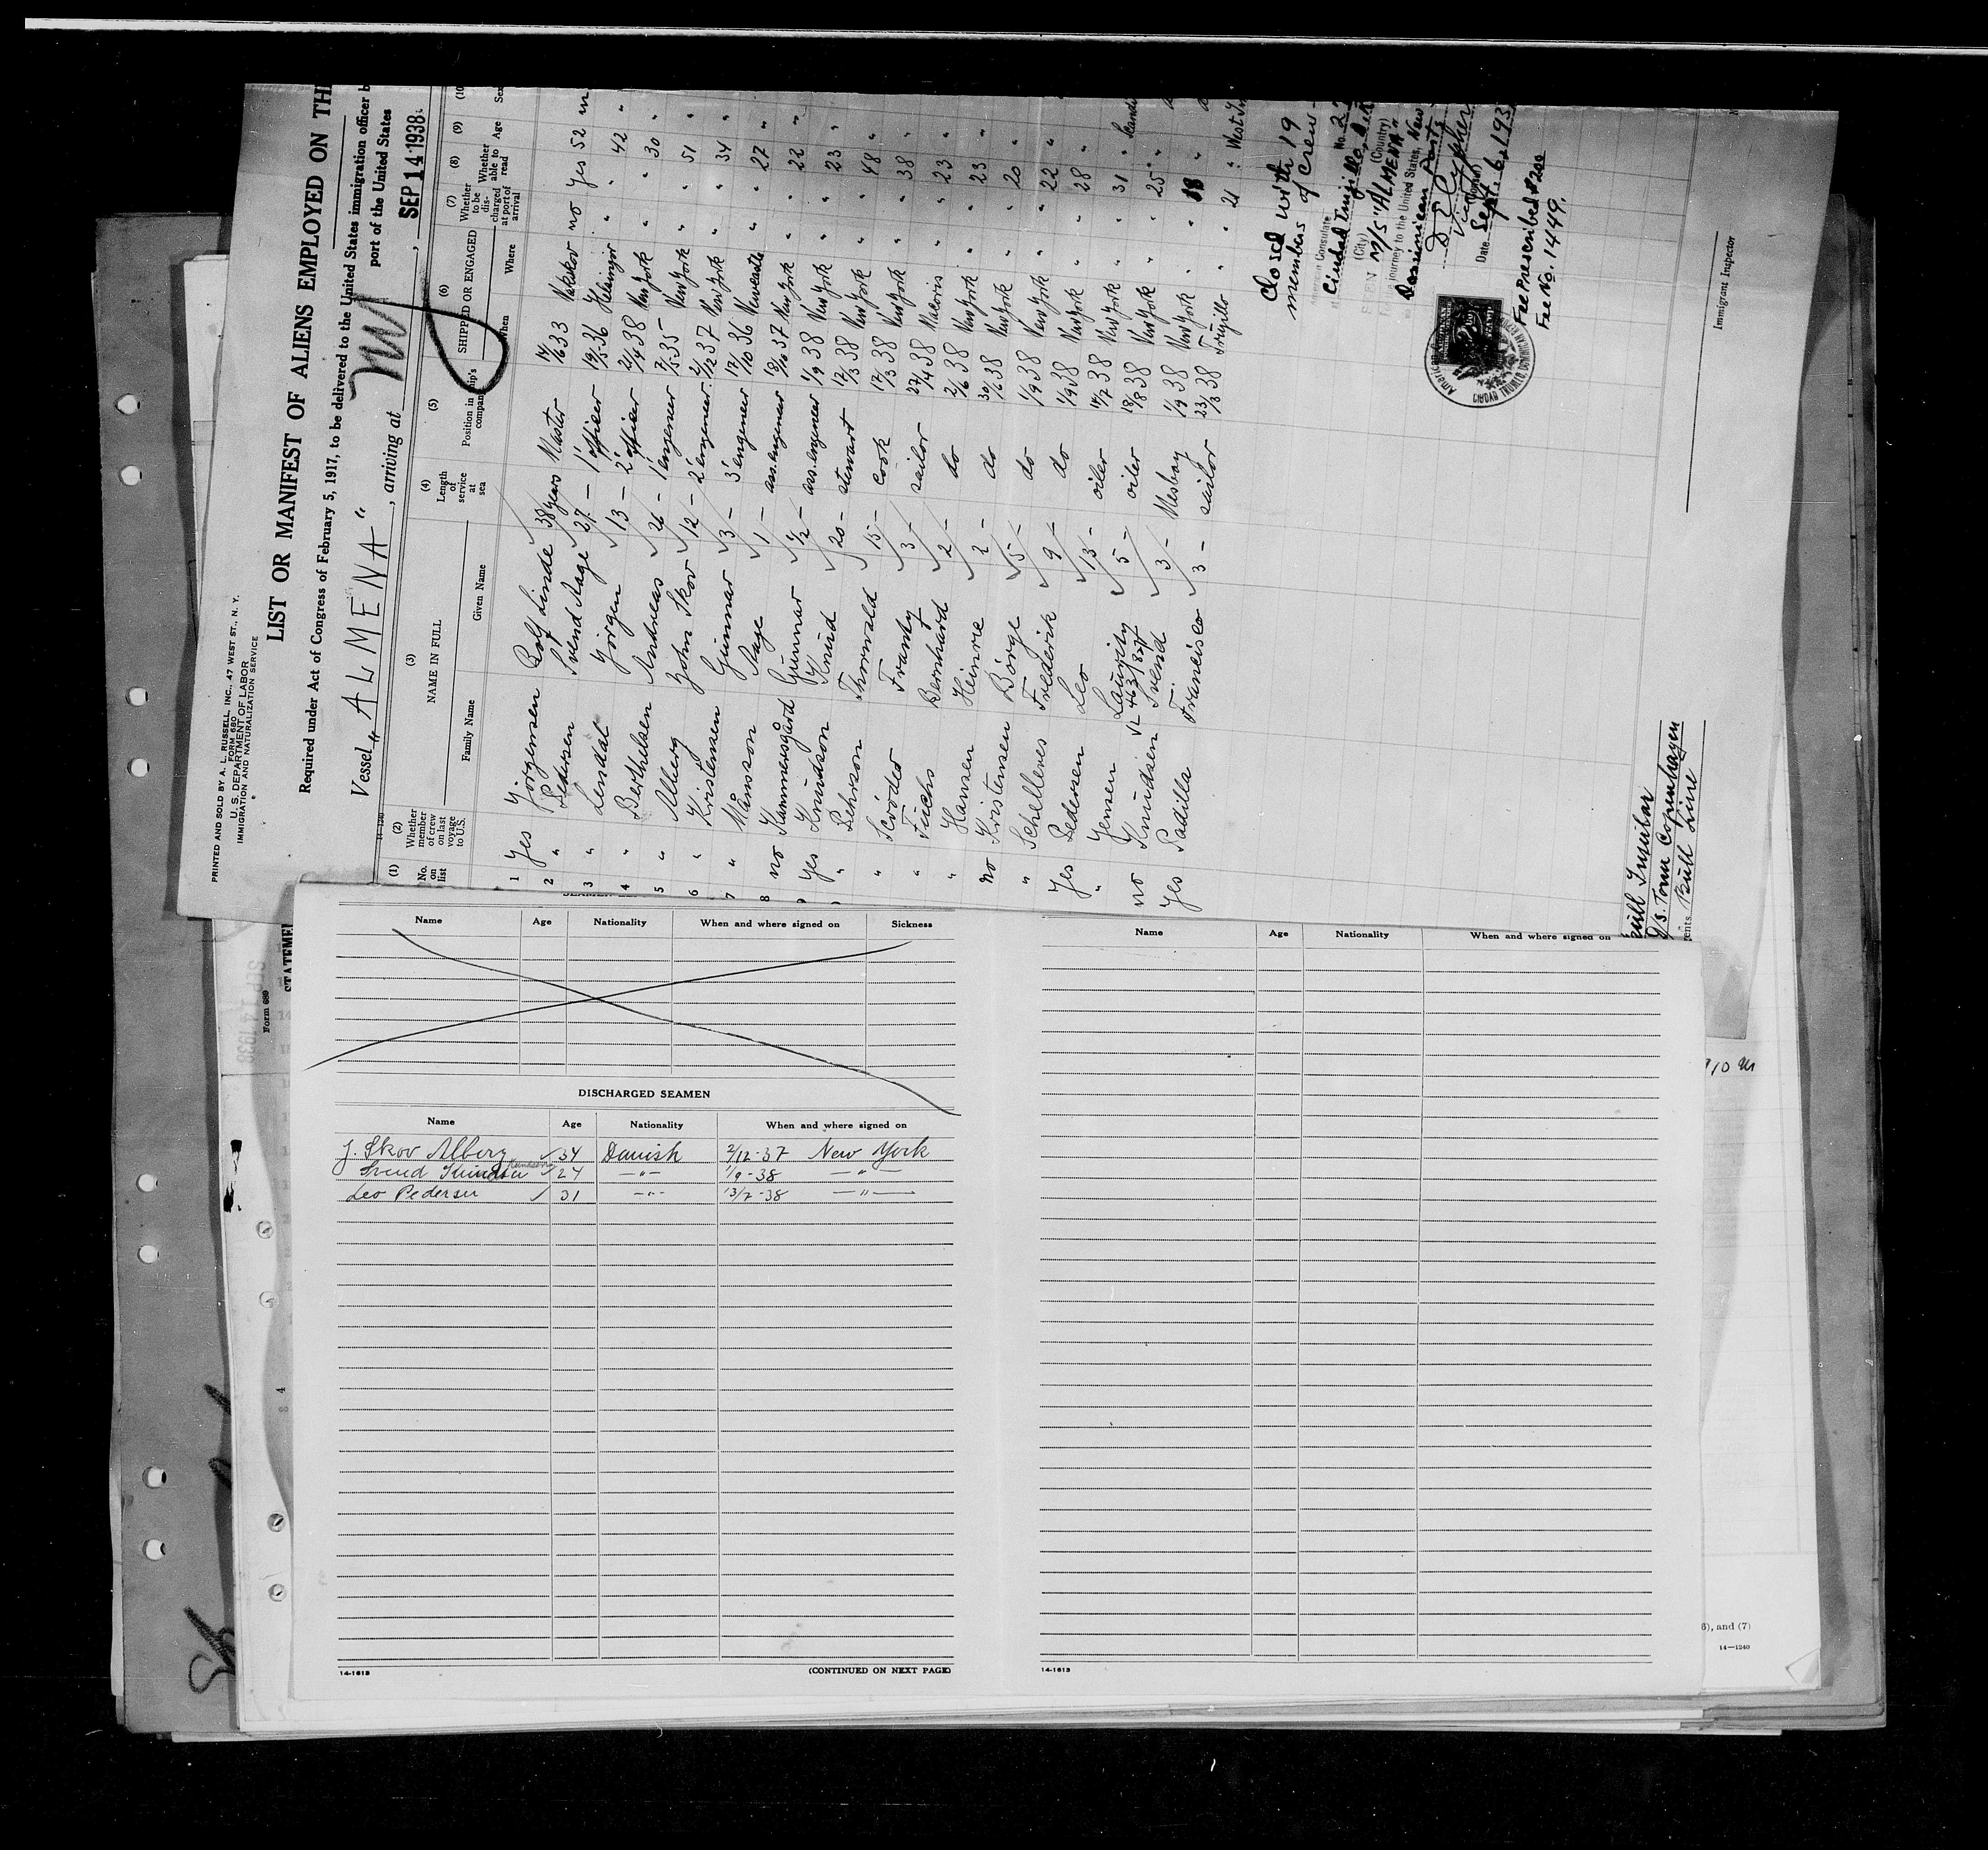 PRINTED AND SOLD BY A. L. RUSSELL, INC., 47 WEST ST., N. Y.
FORM 680
U. S. DEPARTMENT OF LABOR
IMMIGRATION AND NATURALIZATION SERVICE
LIST OR MANIFEST OF ALIENS EMPLOYED ON THE
Required under Act of Congress of February 5, 1917, to be delivered to the United States immigration officer
port of the United States
Vessel "ALMENA", arriving at , SEP 14 1938
(1) (2) (3) (4) (5) (6) (7) (8) (9) (10
No. on list Whether member of crew on last voyage to U.S. NAME IN FULL Length of service at sea Position in ship's company SHIPPED OR ENGAGED Whether to be discharged at port of arrival Whether able to read Age Sex
Family Name Given Name When Where
1 Yes Jörgensen Rolf Linde 38 years Master 14/6 33 Nakskov no yes 52 m
2 " Pedersen Svend Aage 27 - 1' officer 19/5-36 Helsingör " " 42 "
3 " Lendal Jörgen 13 - 2' officer 21/4 38 New York " " 30 "
4 " Berthelsen Andreas 26 - 1' engeneer 7/5-35 New York " " 51 "
5 " Alberg John Skov 12 - 2' engeneer 2/12 37 New York " " 34 "
6 " Kristensen Gunnar 3 - 3' engeneer 17/10 36 Newcastle " " 27 "
7 " Månsson Aage 1 - ass. engeneer 18/10 37 New York " " 22 "
8 no Kammersgård Gunnar 1/2 - ass. engeneer 1/9 38 New York " " 23 "
yes Knudson Knud 20 - stewart 12/3 38 New York " " 48 "
" Pehrson Thorwald 15 - cook 12/3 38 New York " " 38 "
" Scröder Frantz 3 - sailor 27/4 38 Macoris " " 23 "
" Fuchs Bernhard 2 - do 2/6 38 New York " " 23 "
" Hansen Heinre 2 - do 30/6 38 New York " " 20 "
no Kristensen Börge 5 - do 1/9 38 New York " " 22 "
" Schelleves Frederik 9 - do 1/9 38 New York " " 28 "
yes Pedersen Leo 13 - oiler 14/7 38 New York " " 31 " Scandi
" Jensen Lauritz 5 - oiler 18/8 38 New York " " 25 "
no Knudsen Svend 3 - Mesboy 1/9 38 New York " 18 "
yes Padilla Francisco 3 - sailor 23/3 38 Trujillo " " 21 " West In
Closed with 19
members of crew-
American Consulate
Ciudad Trujillo,
(City) (Country)
M/S "ALMENA"
journey to the United States, New
Dominican ports
D E Cypher
Vice Consul
Date Sept. 6, 193
Fee Prescribed $2.00
Fee No. 1449.
Immigrant Inspector
Bull Insular
D/s. Torm Copenhagen
Bull Line
Form 689
SEP 14 1938
Name Age Nationality When and where signed on Sickness
DISCHARGED SEAMEN
Name Age Nationality When and where signed on
J. Skov Alberg 34 Danish 2/12-37 New York
Svend Knudsen 24 -"- 1/9-38 -"-
Leo Pedersen 31 -"- 13/7-38 -"-
14-1613 (CONTINUED ON NEXT PAGE)
Name Age Nationality When and where signed on
14-1613
6), and (7)
14-1240